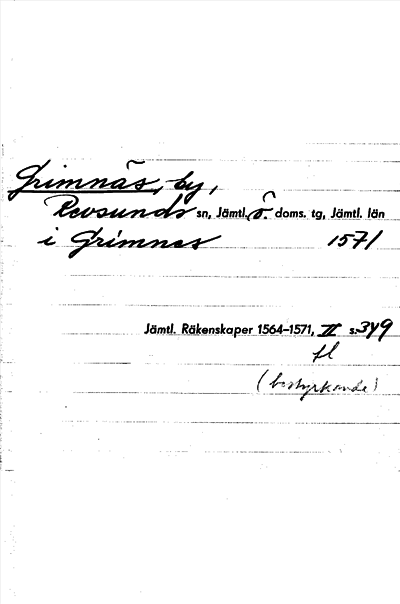 Grimnäs, by,
Revsunds sn, Jämtl. ö. doms. tg, Jämtl. län
i Grimnes 1571
Jämtl. Räkenskaper 1564–1571, II s. 349
fl
(bestyrkande)